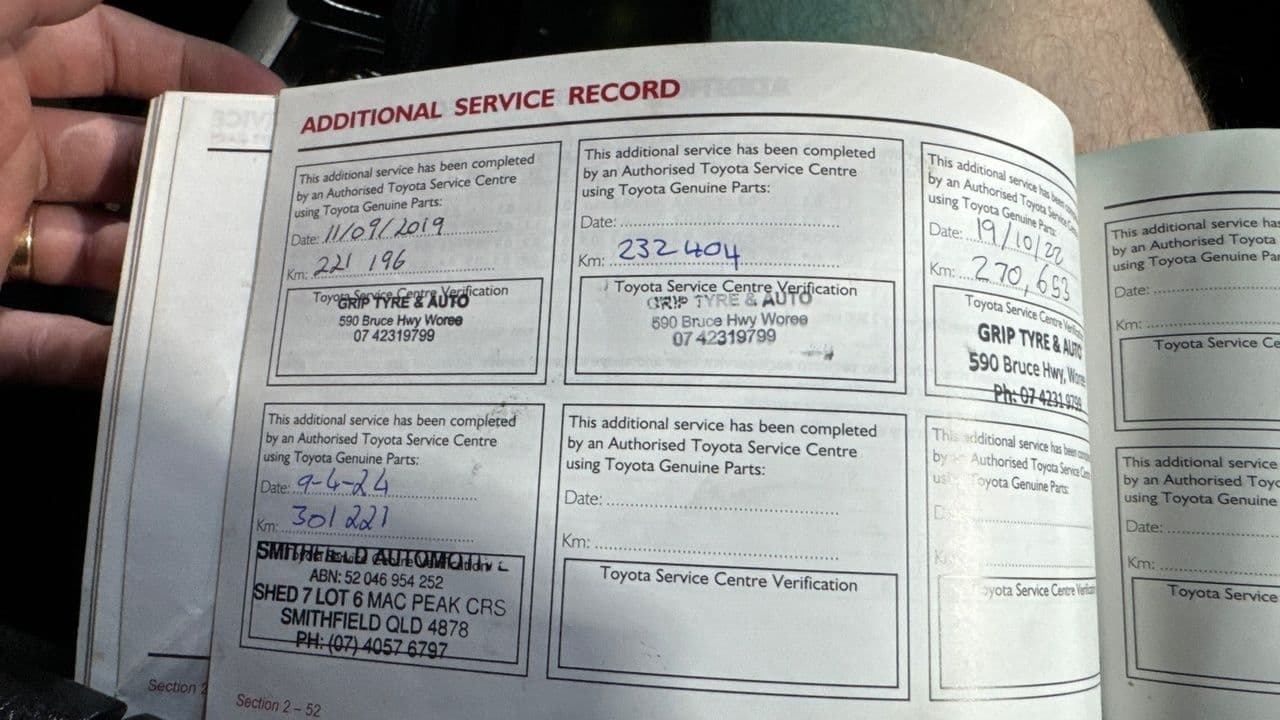 ADDITIONAL SERVICE RECORD
This additional service has been completed
by an Authorised Toyota Service Centre
using Toyota Genuine Parts:
Date: 11/09/2019
Km: 221 196
Toyota Service Centre Verification
GRIP TYRE & AUTO
590 Bruce Hwy Woree
07 42319799
This additional service has been completed
by an Authorised Toyota Service Centre
using Toyota Genuine Parts:
Date:
Km: 232 404
Toyota Service Centre Verification
GRIP TYRE & AUTO
590 Bruce Hwy Woree
07 42319799
This additional service has been
by an Authorised Toyota Service
using Toyota Genuine Parts:
Date: 19/10/22
Km: 270,653
Toyota Service Centre
GRIP TYRE & AUTO
590 Bruce Hwy, Woree
Ph: 07 4231 9799
This additional service has been completed
by an Authorised Toyota Service Centre
using Toyota Genuine Parts:
Date: 9-4-24
Km: 301 221
Toyota Service Centre Verification
SMITHFIELD AUTOMOTIVE
ABN: 52 046 954 252
SHED 7 LOT 6 MAC PEAK CRS
SMITHFIELD QLD 4878
PH: (07) 4057 6797
This additional service has been completed
by an Authorised Toyota Service Centre
using Toyota Genuine Parts:
Date:
Km:
Toyota Service Centre Verification
This additional service has been
by Authorised Toyota Service
Toyota Genuine Parts:
Toyota Service Centre
Section 2 – 52
Section 2
This additional service ha
by an Authorised Toyota
using Toyota Genuine Par
Date:
Km:
Toyota Service Ce
This additional service
by an Authorised Toyo
using Toyota Genuine
Date:
Km:
Toyota Service